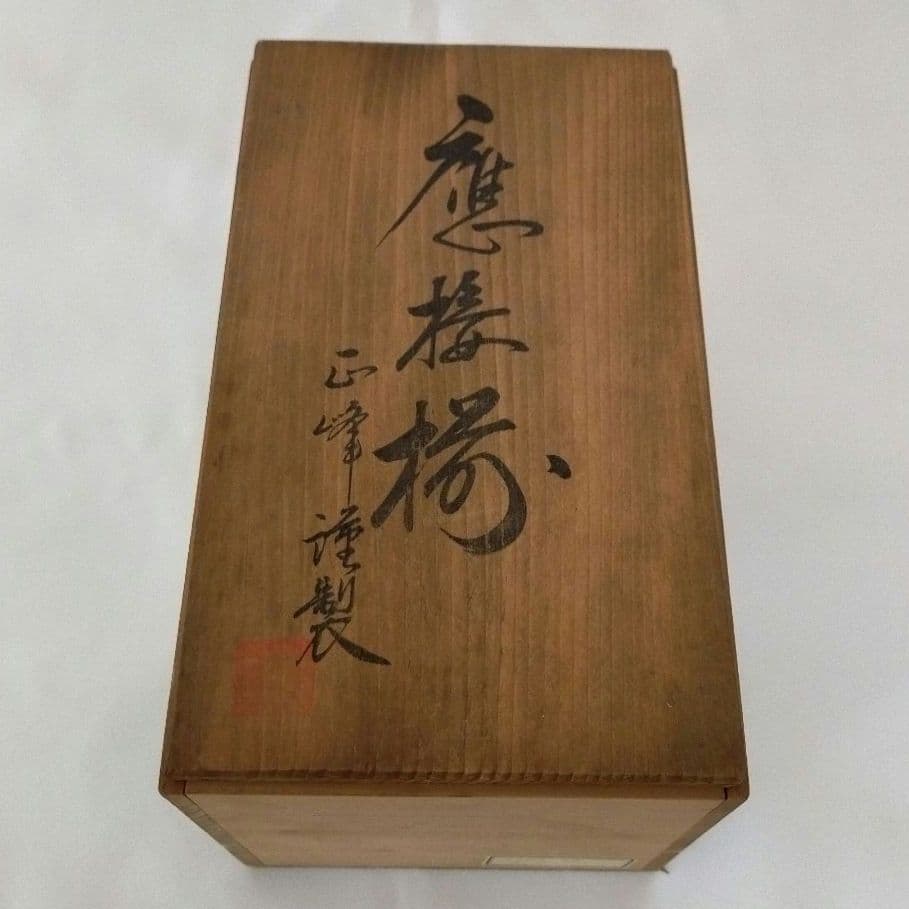 應接揃
正峰謹製